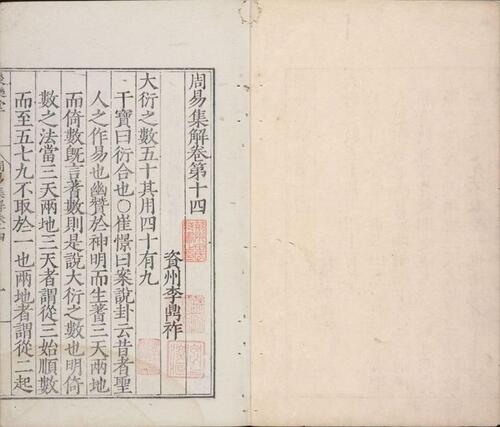 周易集解卷第十四
資州李鼎祚
大衍之數五十其用四十有九
干寶曰衍合也〇崔憬曰案說卦云昔者聖
人之作易也幽贊於神明而生蓍三天兩地
而倚數旣言蓍數則是說大衍之數也明倚
數之法當三天兩地三天者謂從三始順數
而至五七九不取於一也兩地者謂從二起